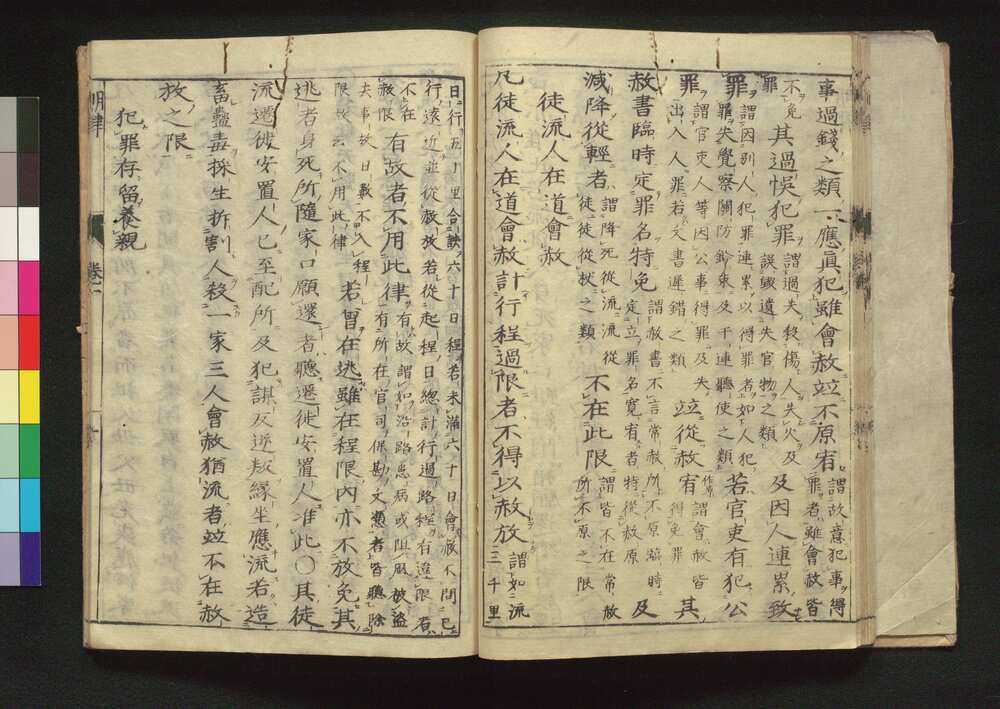 事過錢之類一應眞犯雖會赦竝不原宥謂故意犯事得
罪者雖會赦皆
不免其過悞犯罪謂過失殺傷人失火及
誤毀遺失官物之類及因人連累致
罪謂因別人犯罪連累以得罪者如人犯
罪失覺察關防鈐束及干連聽使之類若官吏有犯公
罪謂官吏人等因公事得罪及失
出入人罪若文書遲錯之類竝從赦宥謂會赦皆
得免罪其
赦書臨時定罪名特免謂赦書不言常赦所不原臨時
定立罪名寬宥者特從赦原及
減降從輕者謂降死從流流從
徒徒從杖之類不在此限謂皆不在常赦
所不原之限
徒流人在道會赦
凡徒流人在道會赦計行程過限者不得以赦放謂如流
三千里
日行五十里合該六十日程若未滿六十日會赦不問已
行遠近並從赦放若從起程日總計行過路程有違限者
不在
赦限有故者不用此律有故謂如沿路患病或阻風被盜
有所在官司保勘文憑者皆聽除
去事故日數不入程
限故云不用此律若曾在逃雖在程限內亦不放免其
逃者身死所隨家口願還者聽遷徙安置人准此○其徒
流遷徙安置人已至配所及犯謀反逆叛緣坐應流若造
畜蠱毒採生拆割人殺一家三人會赦猶流者竝不在赦
放之限
犯罪存留養親
明律
卷一